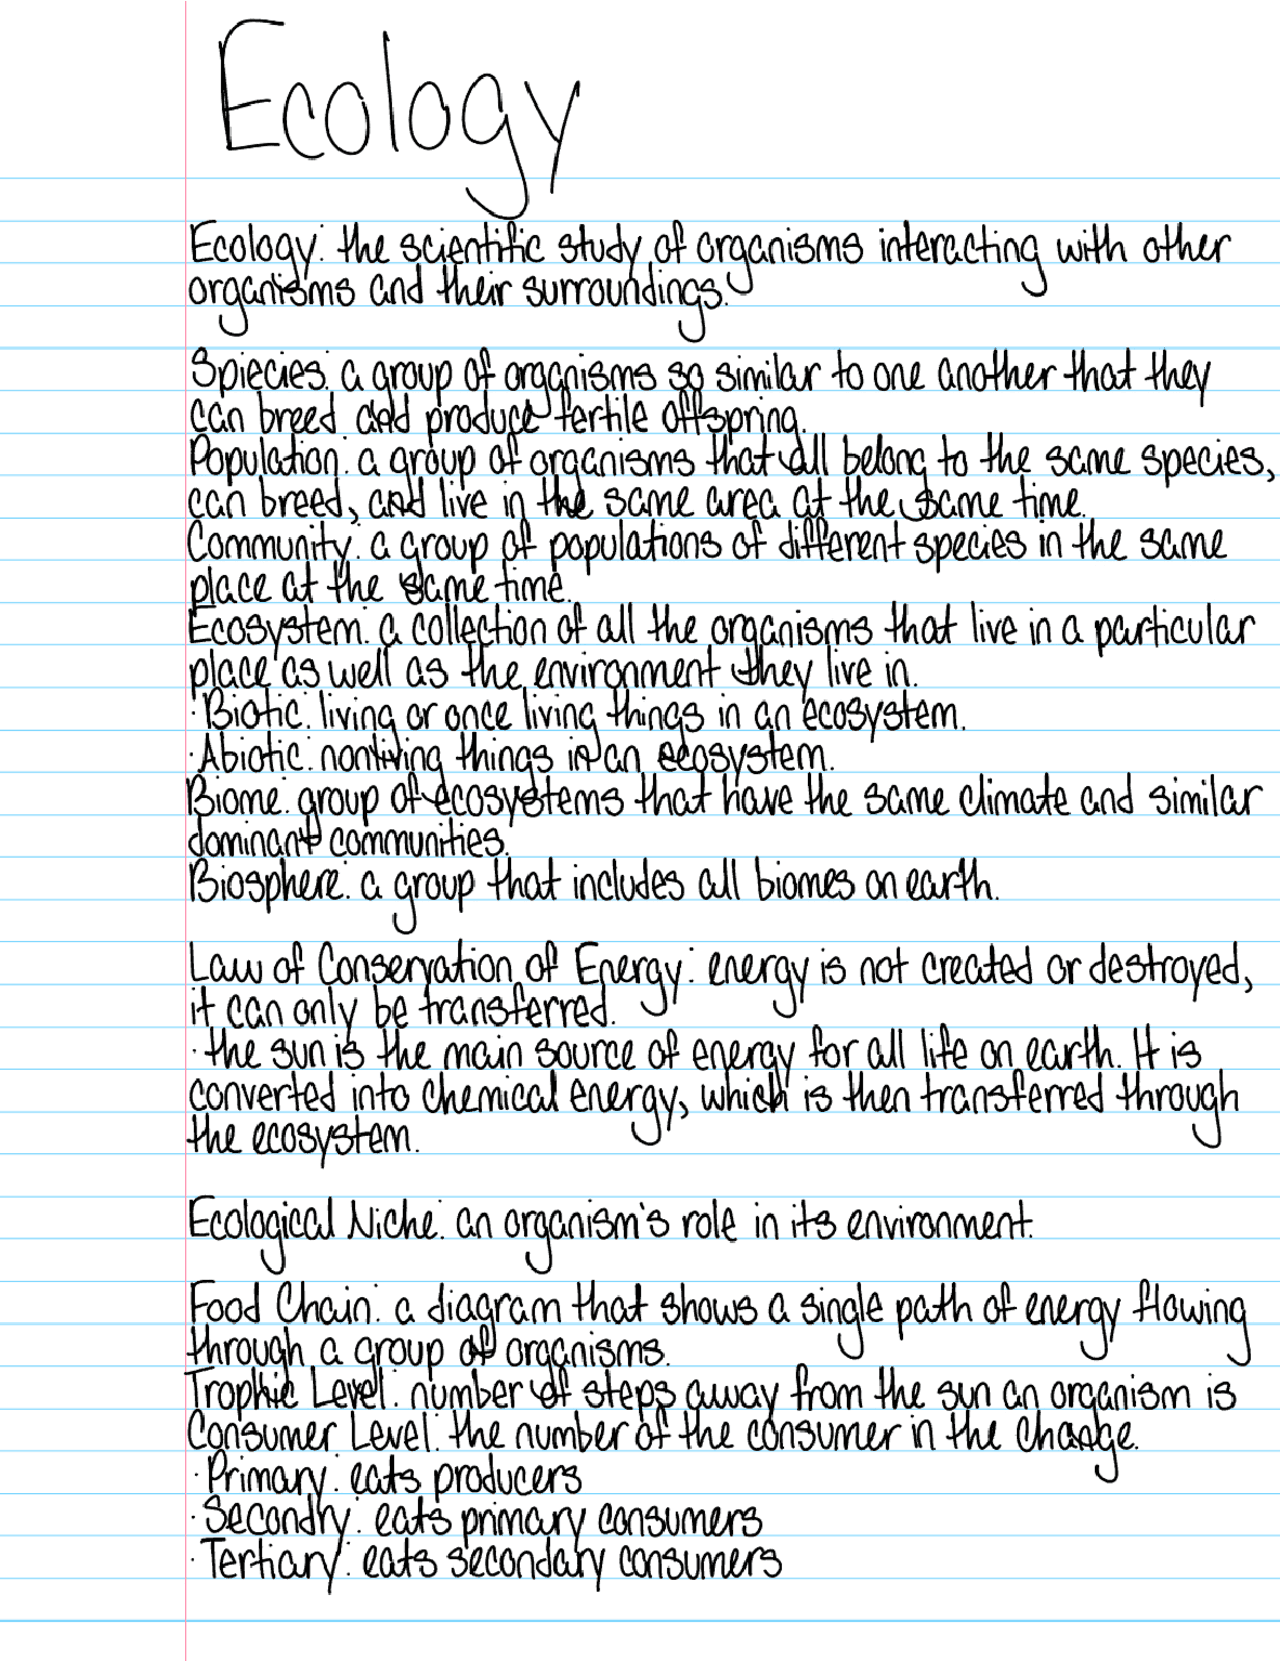 Ecology
Ecology: the scientific study of organisms interacting with other
organisms and their surroundings.
Spiecies: a group of organisms so similar to one another that they
can breed and produce fertile offspring.
Population: a group of organisms that all belong to the same species,
can breed, and live in the same area at the same time.
Community: a group of populations of different species in the same
place at the same time.
Ecosystem: a collection of all the organisms that live in a particular
place as well as the environment they live in.
·Biotic: living or once living things in an ecosystem.
·Abiotic: nonliving things in an ecosystem.
Biome: group of ecosystems that have the same climate and similar
dominant communities.
Biosphere: a group that includes all biomes on earth.
Law of Conservation of Energy: energy is not created or destroyed,
it can only be transferred.
·the sun is the main source of energy for all life on earth. It is
converted into chemical energy, which is then transferred through
the ecosystem.
Ecological Niche: an organism's role in its environment.
Food Chain: a diagram that shows a single path of energy flowing
through a group of organisms.
Trophic Level: number of steps away from the sun an organism is
Consumer Level: the number of the consumer in the change.
·Primary: eats producers
·Secondry: eats primary consumers
·Tertiary: eats secondary consumers